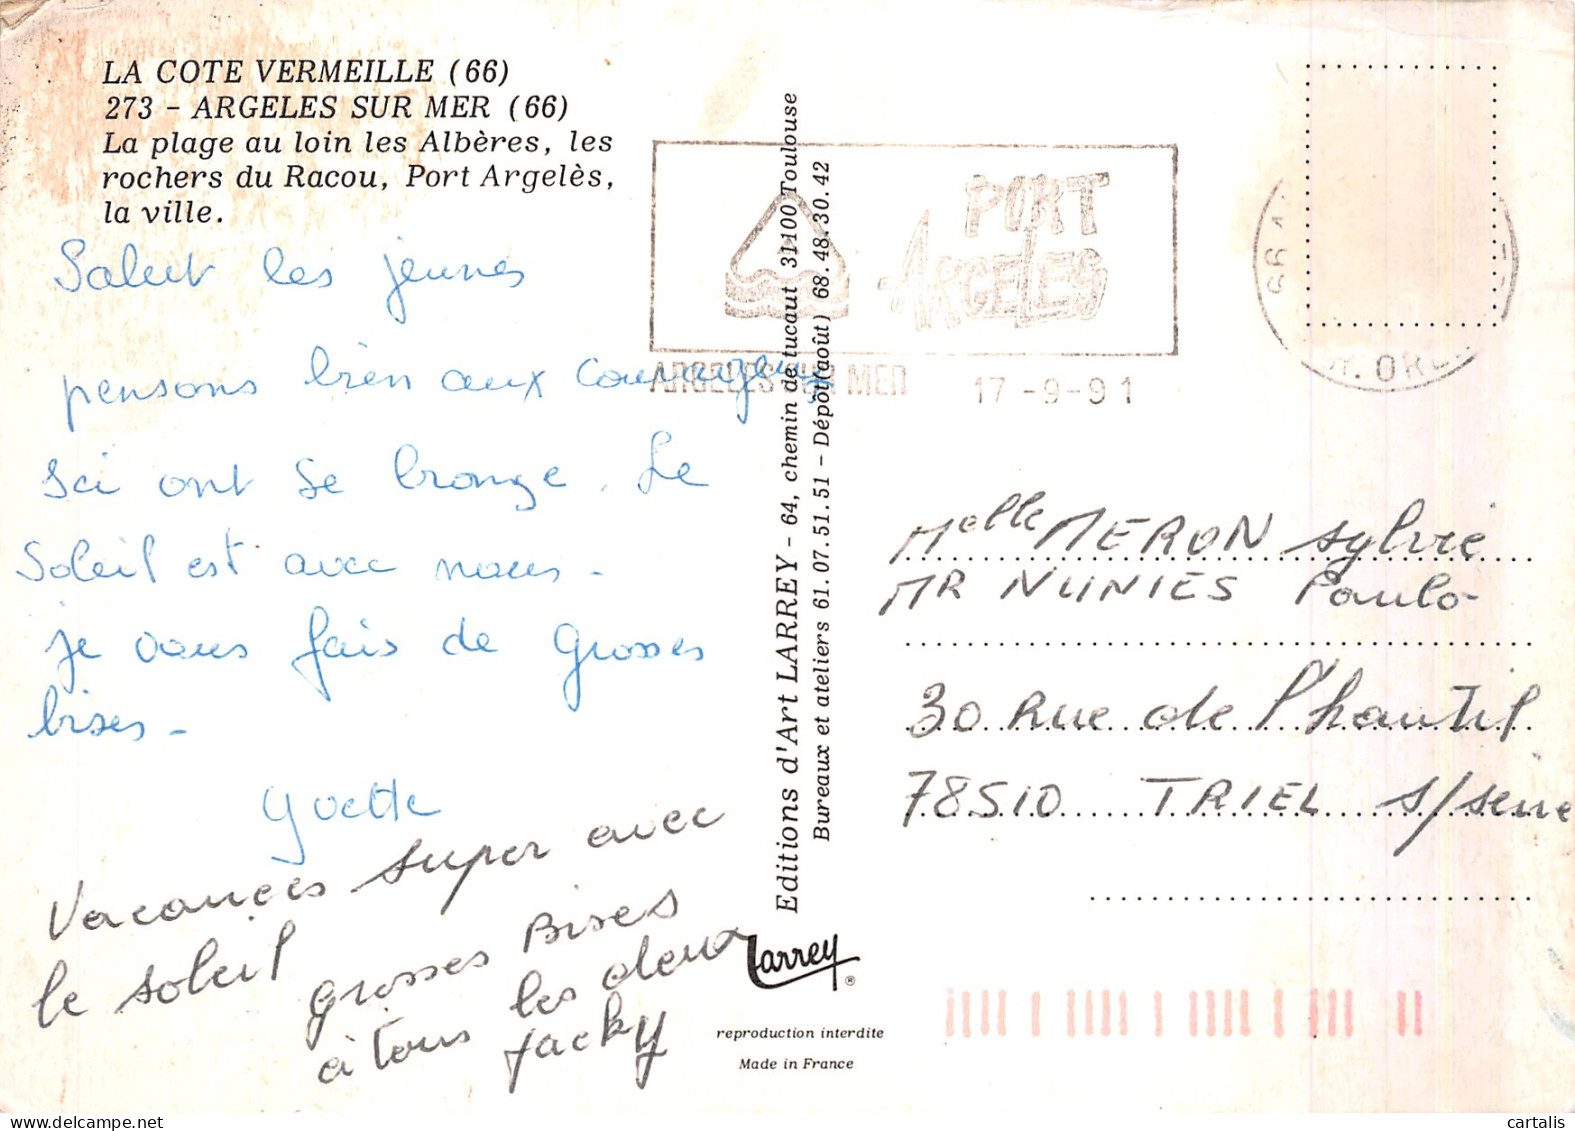 LA COTE VERMEILLE (66)
273 - ARGELES SUR MER (66)
La plage au loin les Albères, les
rochers du Racou, Port Argelès,
la ville.
Salut les jeunes
pensons bien aux courageux
ici ont se bronze. Le
Soleil est avec nous -
je vous fais de grosses
bises -
Yvette
Vacances super avec
le soleil
grosses Bises
à tous les deux
Jacky
Editions d'Art LARREY - 64, chemin de tucaut 31100 Toulouse
Bureaux et ateliers 61.07.51.51 - Dépôt (août) 68.48.30.42
Larrey ®
reproduction interdite
Made in France
PORT
ARGELES
ARGELES SUR MER 17-9-91
66 A
OR.
Melle MERON Sylvie
MR NUNIES Paulo
30 Rue de l'hautil
78510 TRIEL s/seine
cartalis
cartalis.delcampe.net